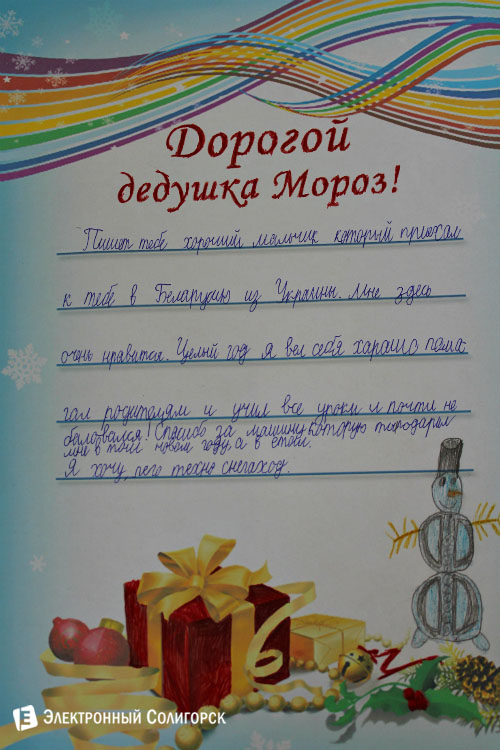 Дорогой
дедушка Мороз!
Пишет тебе хороший мальчик который приехал
к тебе в Беларусию из Украины. Мне здесь
очень нравится. Целый год я вел себя харашо пома-
гал родителям и учил все уроки и почти не
баловался! Спасибо за машину которую ты подарил
мне в том новом году, а в етом.
Я хочу лего техно снегаход.
Электронный Солигорск